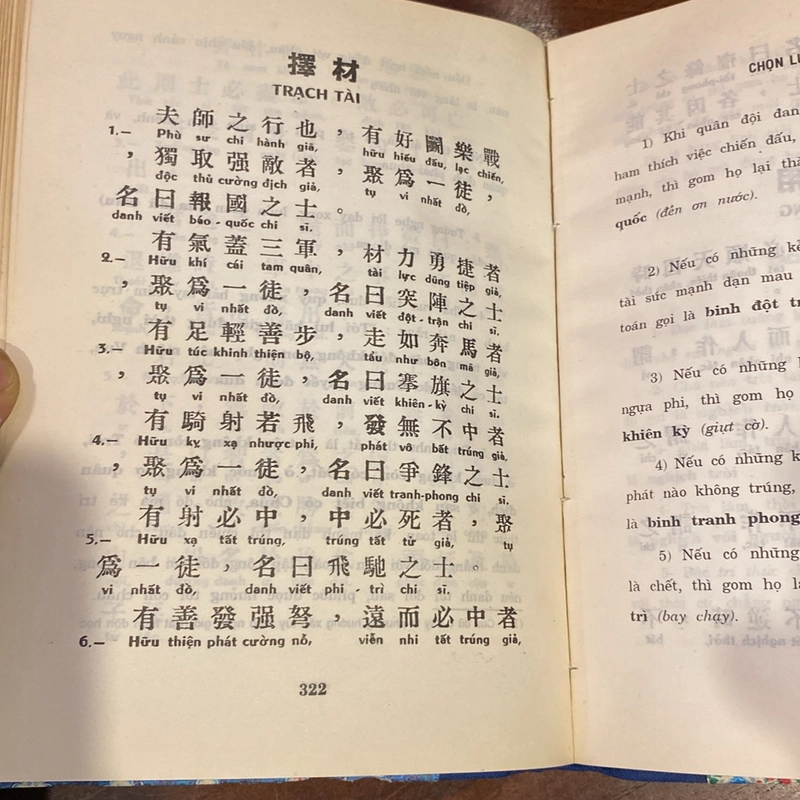 擇材
TRẠCH TÀI
夫師之行也，有好鬭樂戰
1.— Phù sư chi hành giả, hữu hiếu đấu, lạc chiến,
，獨取强敵者，聚爲一徒，
độc thủ cường địch giả, tụ vi nhất đồ,
名曰報國之士。
danh viết báo-quốc chi sĩ.
有氣蓋三軍，材力勇捷者
2.— Hữu khí cái tam quân, tài lực dũng tiệp giả,
，聚爲一徒，名曰突陣之士
tụ vi nhất đồ, danh viết đột-trận chi sĩ.
有足輕善步，走如奔馬者
3.— Hữu túc khinh thiện bộ, tẩu như bôn mã giả,
，聚爲一徒，名曰搴旗之士
tụ vi nhất đồ, danh viết khiên-kỳ chi sĩ.
有騎射若飛，發無不中者
4.— Hữu kỵ xạ nhược phi, phát vô bất trúng giả,
，聚爲一徒，名曰爭鋒之士
tụ vi nhất đồ, danh viết tranh-phong chi sĩ.
有射必中，中必死者，聚
5.— Hữu xạ tất trúng, trúng tất tử giả, tụ
爲一徒，名曰飛馳之士。
vi nhất đồ, danh viết phi-trì chi sĩ.
有善發强弩，遠而必中者
6.— Hữu thiện phát cường nỗ, viễn nhi tất trúng giả,
322
CHỌN
1) Khi quân đội đan
ham thích việc chiến đấu,
mạnh, thì gom họ lại
quốc (đền ơn nước).
2) Nếu có những
tài sức mạnh dạn mau
toán gọi là binh đột
3) Nếu có những
ngựa phi, thì gom họ
khiên kỳ (giựt cờ).
4) Nếu có những
phát nào không trúng,
là binh tranh phong
5) Nếu có những
là chết, thì gom họ
trì (bay chạy).